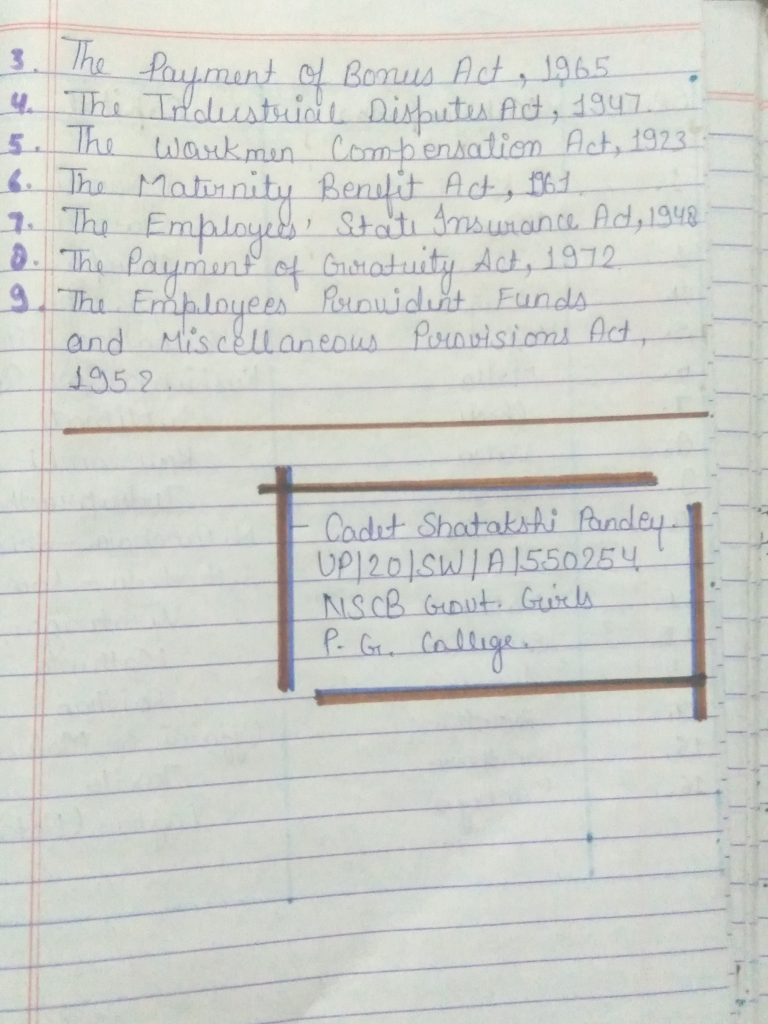 3. The Payment of Bonus Act, 1965
4. The Industrial Disputes Act, 1947.
5. The Workmen Compensation Act, 1923
6. The Maternity Benefit Act, 1961
7. The Employees' State Insurance Act, 1948
8. The Payment of Gratuity Act, 1972
9. The Employees Provident Funds
and Miscellaneous Provisions Act,
1952.
- Cadet Shatakshi Pandey.
UP/20/SW/A/550254
NSCB Govt. Girls
P. G. College.